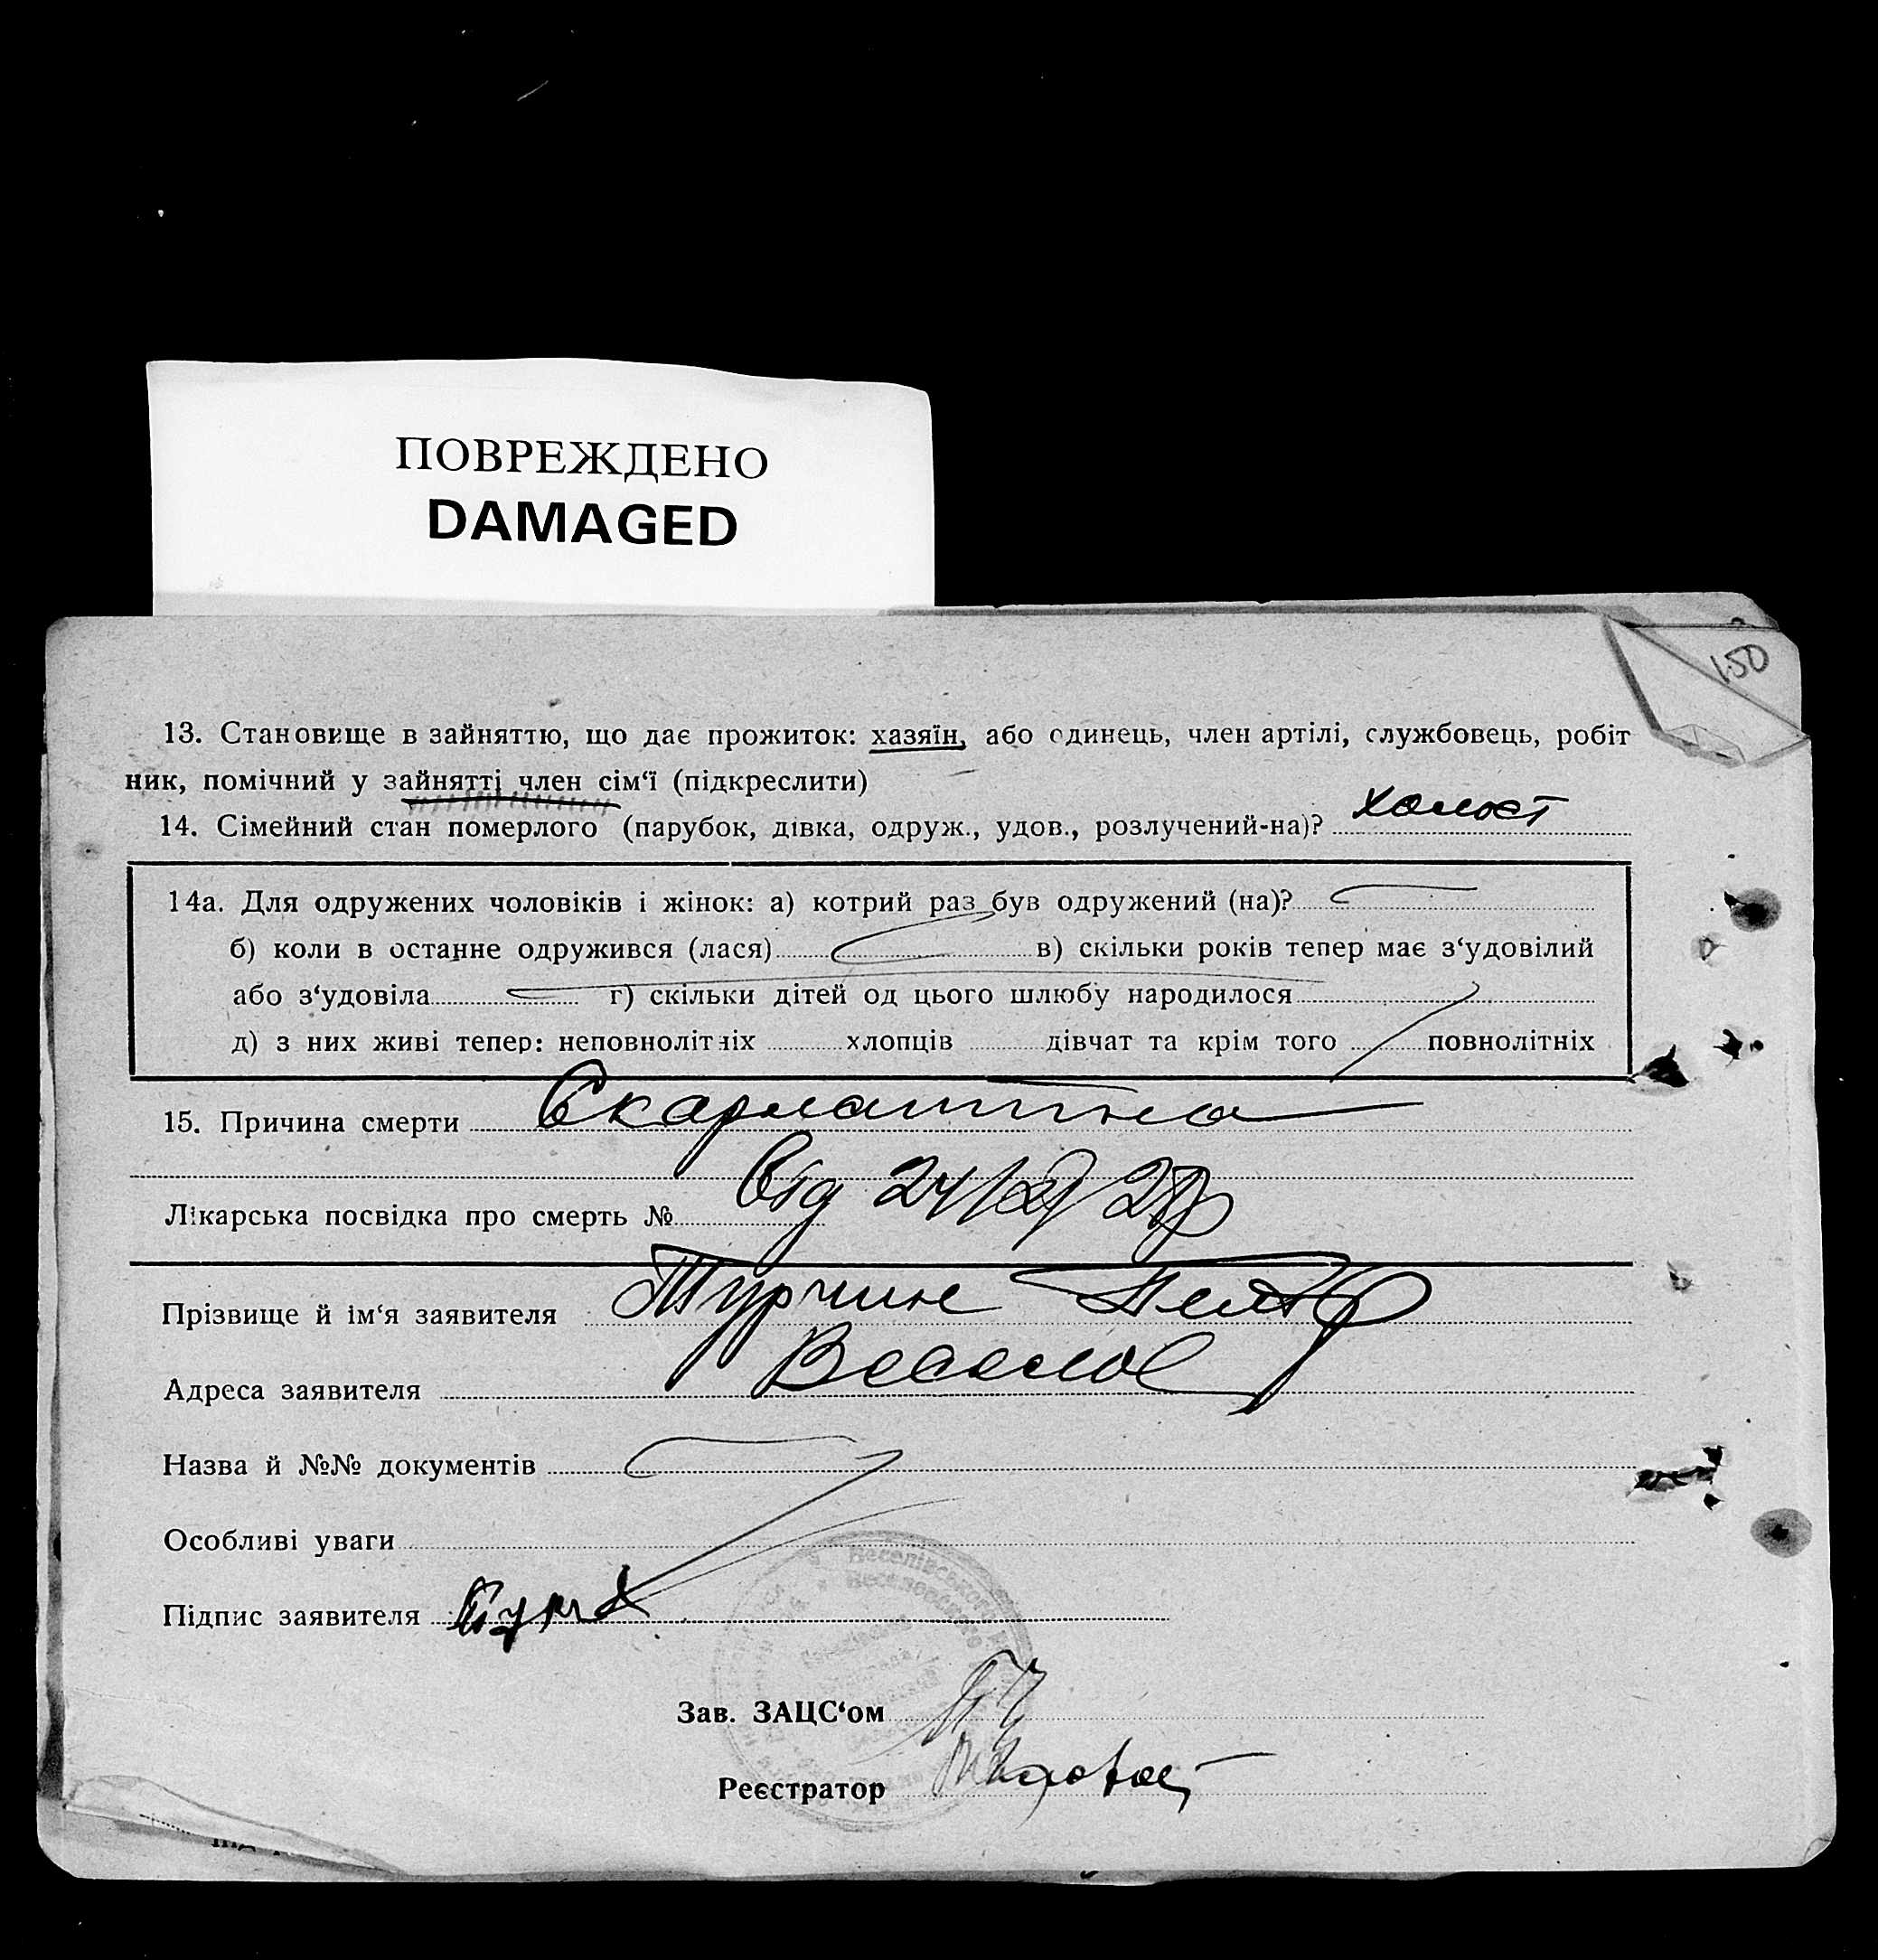 ПОВРЕЖДЕНО
DAMAGED
150
13. Становище в зайняттю, що дає прожиток: хазяїн, або одинець, член артілі, службовець, робіт
ник, помічний у зайнятті член сім‘ї (підкреслити)
14. Сімейний стан померлого (парубок, дівка, одруж., удов., розлучений-на)? холост
14а. Для одружених чоловіків і жінок: а) котрий раз був одружений (на)?
б) коли в останне одружився (лася) в) скільки років тепер має з‘удовілий
або з‘удовіла г) скільки дітей од цього шлюбу народилося
д) з них живі тепер: неповнолітніх хлопців дівчат та крім того повнолітніх
15. Причина смерти Скарлатина
Лікарська посвідка про смерть № Від 24
Прізвище й ім‘я заявителя Турчин Петр
Адреса заявителя Веселое
Назва й №№ документів
Особливі уваги
Підпис заявителя
Веселівського
Зав. ЗАЦС‘ом
Реєстратор